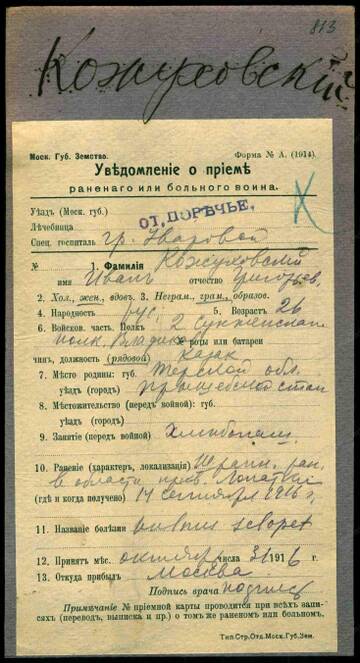 813
Кожуховский
Моск. Губ. Земство.
Форма № А. (1914).
Увѣдомленіе о пріемѣ
раненаго или больного воина.
Уѣздъ (Моск. губ.)
ст. ПОРѢЧЬЕ.
Лѣчебница
Спец. госпиталь гр. Уваровой
№ 1. Фамилія Кожуховский
имя Иванъ отчество Григорьев.
2. Хол., жен., вдовъ. 3. Неграм., грам., образов.
4. Народность рус. 5. Возрастъ 26
6. Войсков. часть. Полкъ 2
полк. роты или батареи
чинъ, должность (рядовой) казак
7. Мѣсто родины: губ. Терской обл.
уѣздъ (городъ)
8. Мѣстожительство (передъ войной): губ.
уѣздъ (городъ)
9. Занятіе (передъ войной) хлѣбопаш.
10. Раненіе (характеръ, локализація) Шрапн. ран.
в области прав. лопатки
(гдѣ и когда получено) 14 сентября 1916 г.
11. Названіе болѣзни vulnus sclopet
12. Принятъ мѣс. октября числа 31 1916 г.
13. Откуда прибылъ Москва
Подпись врача подпись
Примѣчаніе № пріемной карты проводится при всѣхъ запи-
сяхъ (переводъ, выписка и пр.) о томъ же раненомъ или больномъ.
Тип. Стр. Отд. Моск. Губ. Зем.